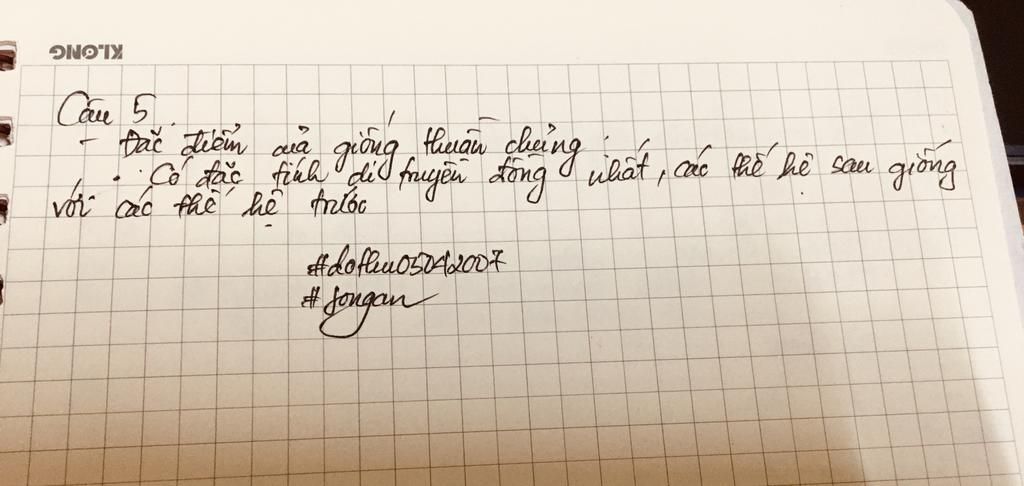 KLONG
Câu 5.
- Đặc điểm của giống thuần chủng:
• Có đặc tính di truyền đồng nhất, các thế hệ sau giống
với các thế hệ trước
#dothu05042007
#fongan